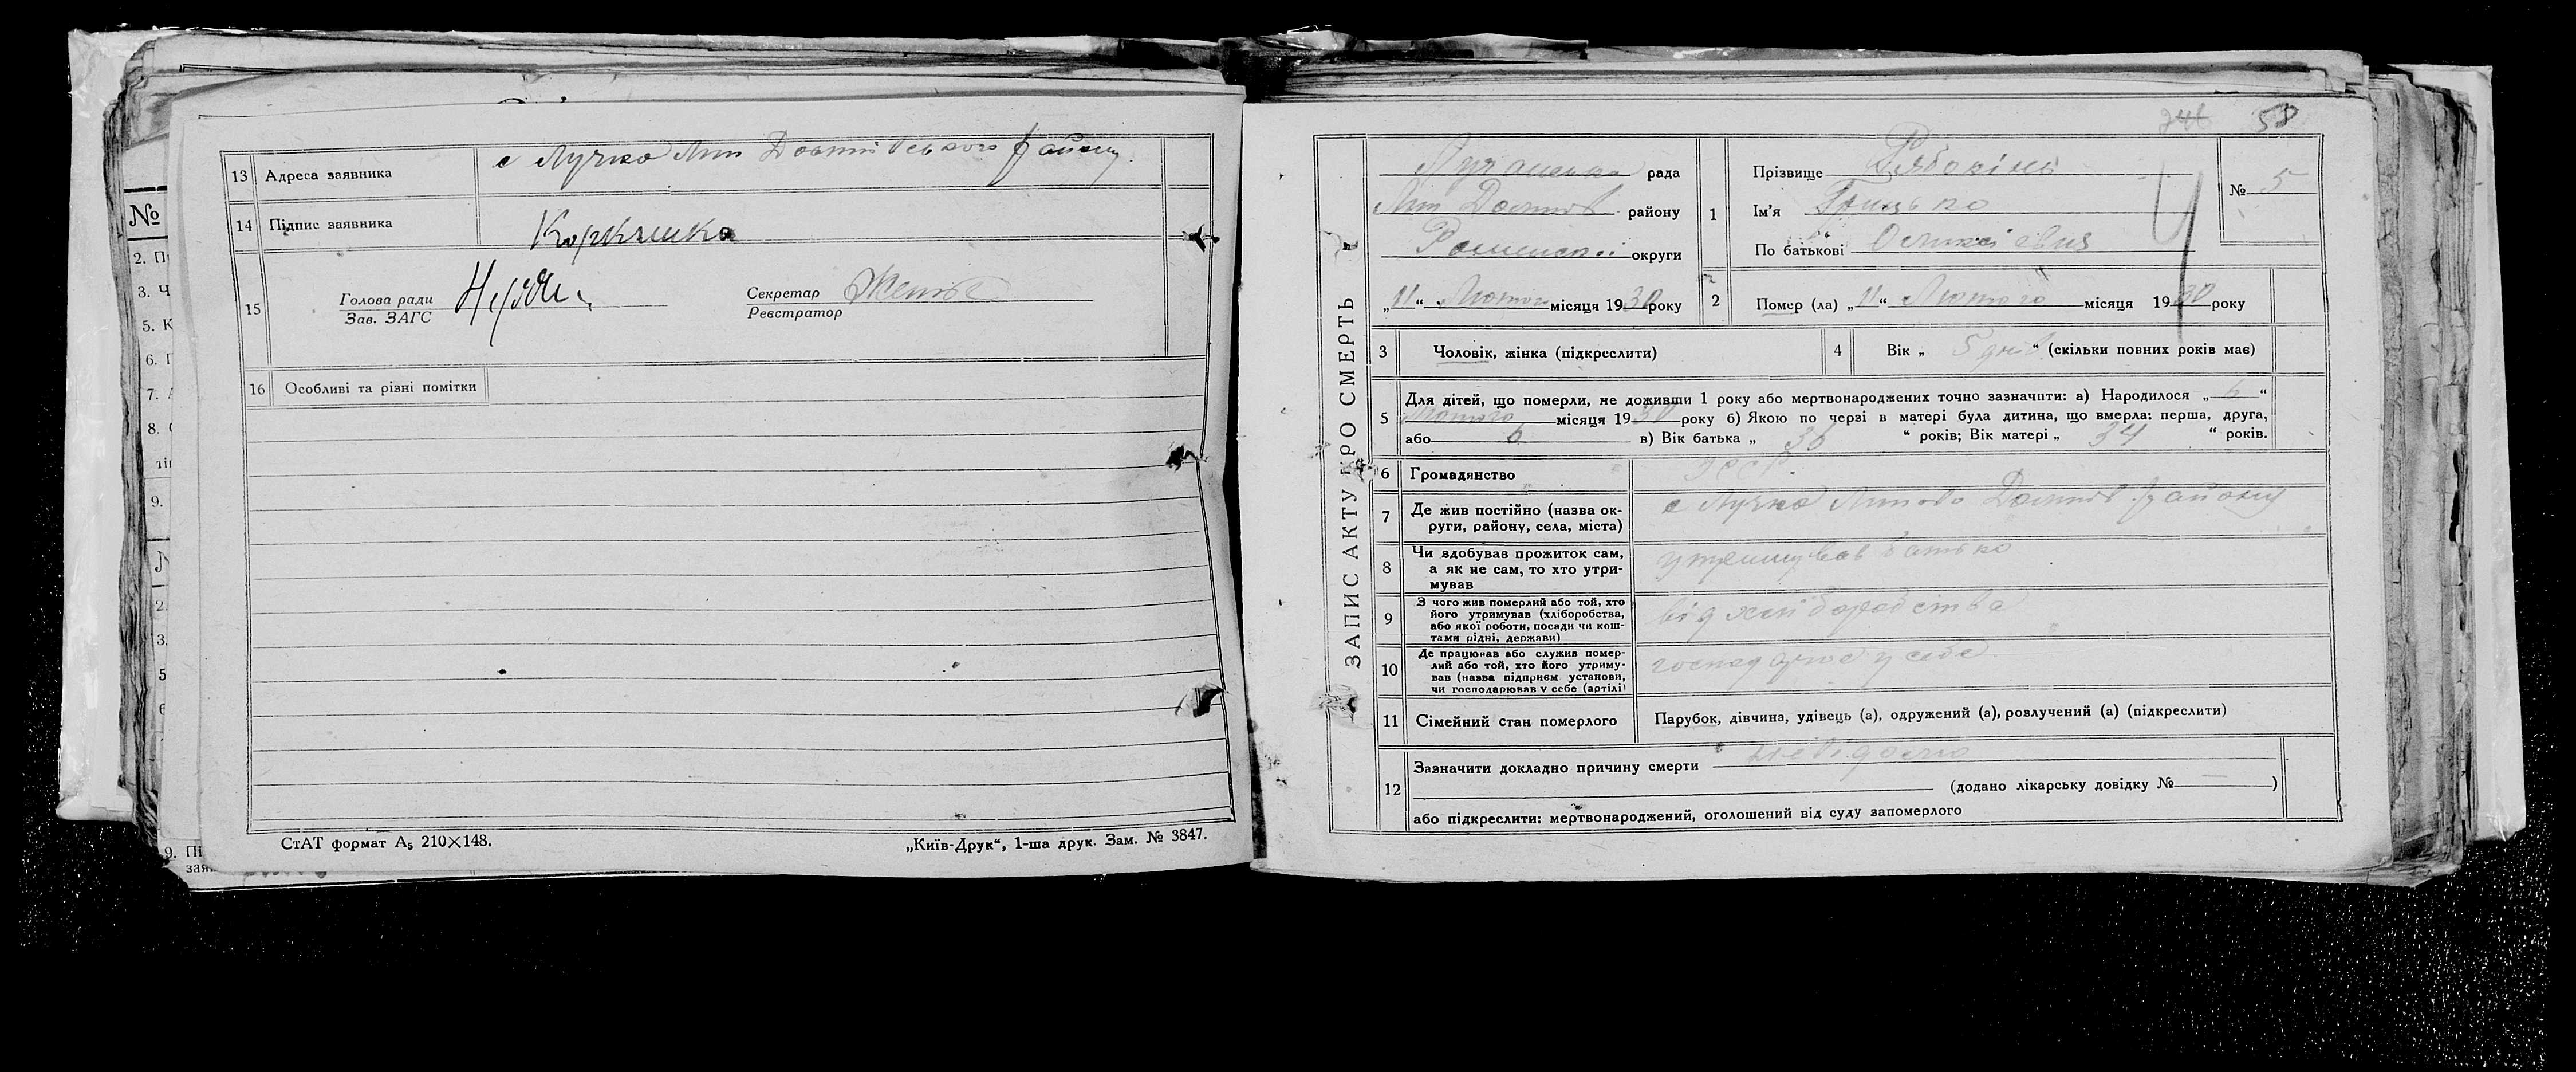 13 Адреса заявника с Лучка Лип Долинівського району.
14 Підпис заявника
15 Голова ради
Зав. ЗАГС
Секретар
Реєстратор
16 Особливі та різні помітки
СтАТ формат А₅ 210×148.
„Київ-Друк“, 1-ша друк. Зам. № 3847.
№
2.
3. Ч
5. К
6.
7.
8.
9.
58
ЗАПИС АКТУ ПРО СМЕРТЬ
Лучанська рада
Лип Долинів району
Роменської округи
„11“ Лютого місяця 1930 року
1 Прізвище Рябокінь
Ім'я Грицько
По батькові Олексієвич
№ 5
2 Помер (ла) „11“ Лютого місяця 1930 року
3 Чоловік, жінка (підкреслити)
4 Вік „5 днів“ (скільки повних років має)
5 Для дітей, що померли, не доживши 1 року або мертвонароджених точно зазначити: а) Народилося „6“
Лютого місяця 1930 року б) Якою по черзі в матері була дитина, що вмерла: перша, друга,
або 6 в) Вік батька „36“ років; Вік матері „34“ років.
6 Громадянство УССР
7 Де жив постійно (назва округи, району, села, міста) с Лучка Липово Долинів району
8 Чи здобував прожиток сам,
а як не сам, то хто утри-
мував утримував батько
9 З чого жив померлий або той, хто
його утримував (хліборобства,
або якої роботи, посади чи кош-
тами рідні, держави) від хліборобства
10 Де працював або служив помер-
лий або той, хто його утриму-
вав (назва підприєм установи,
чи господарював у себе (артілі) у себе.
11 Сімейний стан померлого Парубок, дівчина, удівець (а), одружений (а), розлучений (а) (підкреслити)
12 Зазначити докладно причину смерти невідомо
(додано лікарську довідку № —)
або підкреслити: мертвонароджений, оголошений від суду запомерлого